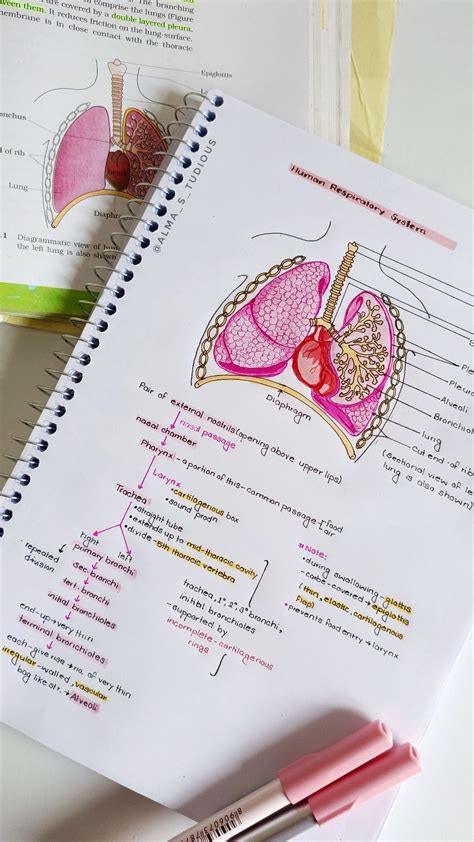 ween them. It
comprise the lungs (Figure
are covered by a double layered pleura,
It reduces friction on the lung-surface.
membrane is in close contact with the thoracic
Epiglottis
onchus
of rib
Lung
Heart
Diaphragm
.1 Diagrammatic view of hum
the left lung is also shown
@ALMA_S_TUDIOUS
Human Respiratory System
Diaphragm
Pleura
Alveoli
Bronchiol
lung
cut end of rib
(sectional view of le
lung is also shown)
Pair of external nostrils (opening above upper lips)
nasal passage
nasal chamber
Pharynx - a portion of this - common passage - food
air
Larynx
• cartilagenous box
• sound prodn
Trachea
• straight tube
• extends up to mid-thoracic cavity
• divide - 5th thoracic vertebra
right
left
repeated
division
primary bronchi
sec. bronchi
tert. bronchi
initial bronchioles
end-up → very thin
terminal bronchioles
each-give rise → no. of very thin
irregular-walled, vascular
bag like str. → Alveoli
trachea, 1°, 2°, 3° bronchi,
initial bronchioles
- supported by
incomplete-cartilagenous
rings
* Note:
• during swallowing - glottis
- can be - covered → epiglottis
(thin, elastic, cartilagenous
flap)
• prevents food entry → larynx
8906073787